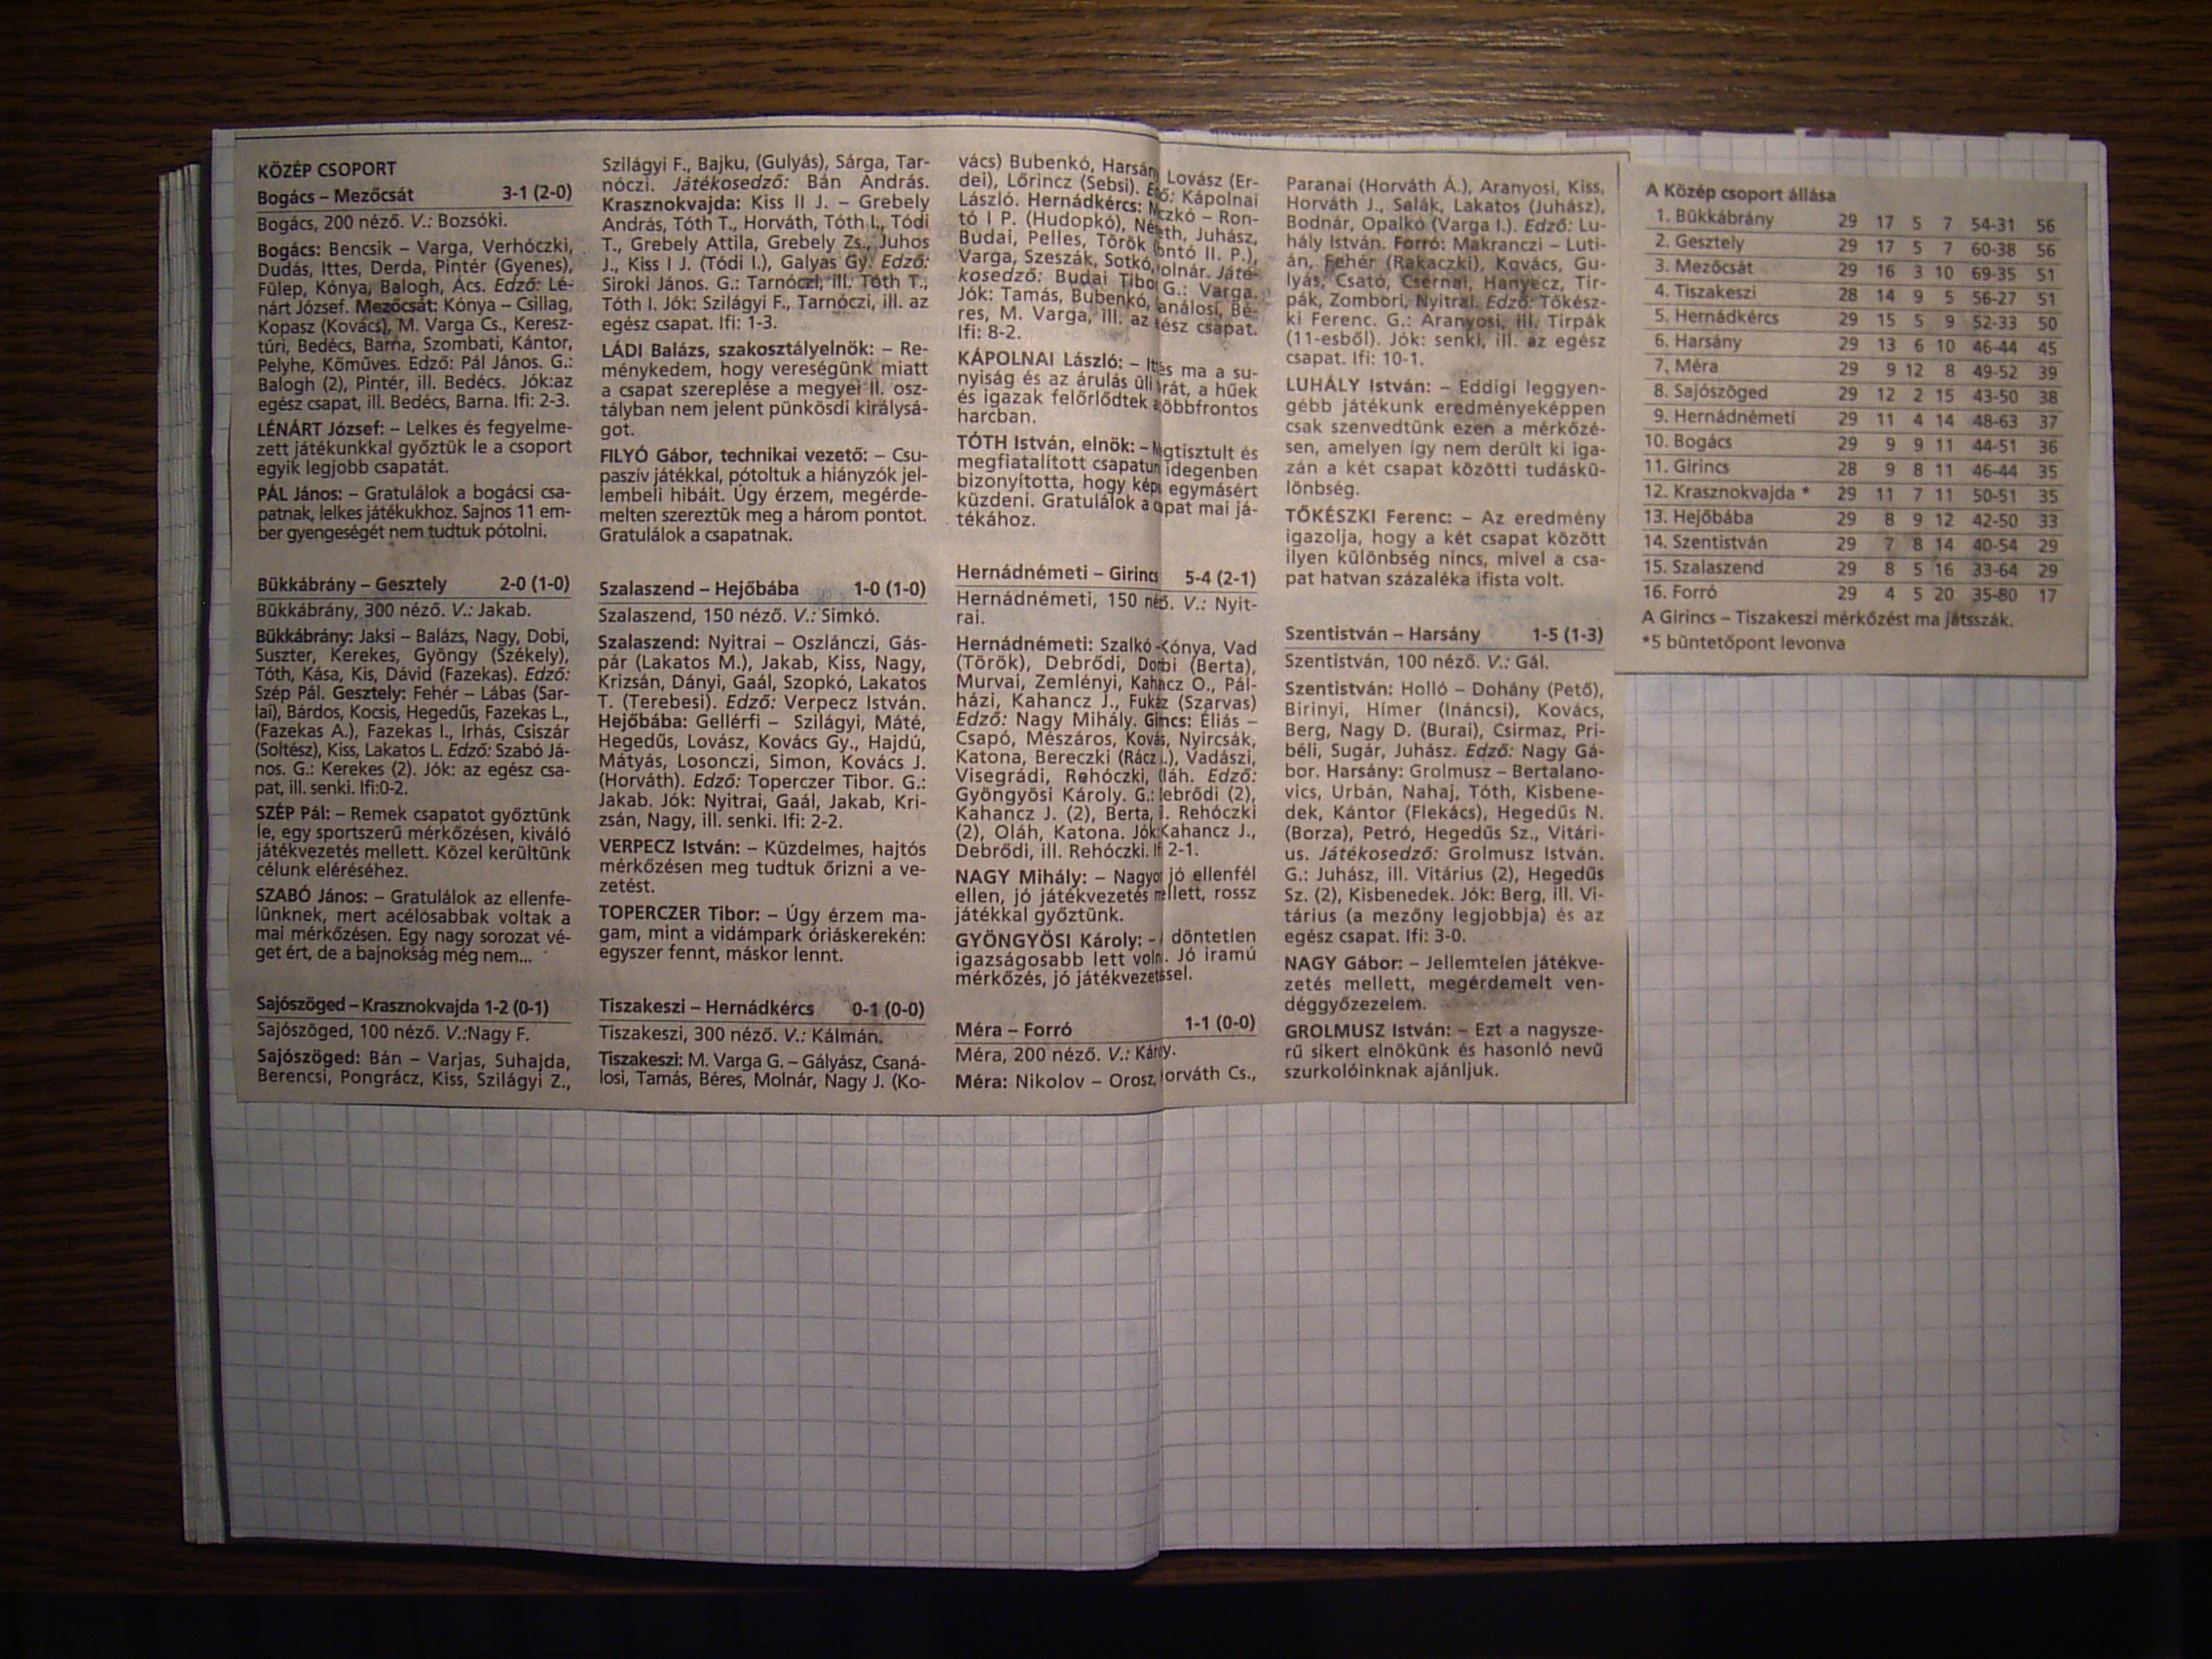 KÖZÉP CSOPORT
Bogács – Mezőcsát 3-1 (2-0)
Bogács, 200 néző. V.: Bozsóki.
Bogács: Bencsik – Varga, Verhóczki,
Dudás, Ittes, Derda, Pintér (Gyenes),
Fülep, Kónya, Balogh, Ács. Edző: Lé-
nárt József. Mezőcsát: Kónya – Csillag,
Kopasz (Kovács), M. Varga Cs., Keresz-
túri, Bedécs, Barna, Szombati, Kántor,
Pelyhe, Kőműves. Edző: Pál János. G.:
Balogh (2), Pintér, ill. Bedécs. Jók:az
egész csapat, ill. Bedécs, Barna. Ifi: 2-3.
LÉNÁRT József: – Lelkes és fegyelme-
zett játékunkkal győztük le a csoport
egyik legjobb csapatát.
PÁL János: – Gratulálok a bogácsi csa-
patnak, lelkes játékukhoz. Sajnos 11 em-
ber gyengeségét nem tudtuk pótolni.
Bükkábrány – Gesztely 2-0 (1-0)
Bükkábrány, 300 néző. V.: Jakab.
Bükkábrány: Jaksi – Balázs, Nagy, Dobi,
Suszter, Kerekes, Gyöngy (Székely),
Tóth, Kása, Kis, Dávid (Fazekas). Edző:
Szép Pál. Gesztely: Fehér – Lábas (Sar-
lai), Bárdos, Kocsis, Hegedűs, Fazekas L.,
(Fazekas A.), Fazekas I., Irhás, Csiszár
(Soltész), Kiss, Lakatos L. Edző: Szabó Já-
nos. G.: Kerekes (2). Jók: az egész csa-
pat, ill. senki. Ifi:0-2.
SZÉP Pál: – Remek csapatot győztünk
le, egy sportszerű mérkőzésen, kiváló
játékvezetés mellett. Közel kerültünk
célunk eléréséhez.
SZABÓ János: – Gratulálok az ellenfe-
lünknek, mert acélosabbak voltak a
mai mérkőzésen. Egy nagy sorozat vé-
get ért, de a bajnokság még nem...
Sajószöged – Krasznokvajda 1-2 (0-1)
Sajószöged, 100 néző. V.:Nagy F.
Sajószöged: Bán – Varjas, Suhajda,
Berencsi, Pongrácz, Kiss, Szilágyi Z.,
Szilágyi F., Bajku, (Gulyás), Sárga, Tar-
nóczi. Játékosedző: Bán András.
Krasznokvajda: Kiss II J. – Grebely
András, Tóth T., Horváth, Tóth I., Tódi
T., Grebely Attila, Grebely Zs., Juhos
J., Kiss I J. (Tódi I.), Galyas Gy. Edző:
Siroki János. G.: Tarnóczi, ill. Tóth T.,
Tóth I. Jók: Szilágyi F., Tarnóczi, ill. az
egész csapat. Ifi: 1-3.
LÁDI Balázs, szakosztályelnök: – Re-
ménykedem, hogy vereségünk miatt
a csapat szereplése a megyei II. osz-
tályban nem jelent pünkösdi királysá-
got.
FILYÓ Gábor, technikai vezető: – Csu-
paszív játékkal, pótoltuk a hiányzók jel-
lembeli hibáit. Úgy érzem, megérde-
melten szereztük meg a három pontot.
Gratulálok a csapatnak.
Szalaszend – Hejőbába 1-0 (1-0)
Szalaszend, 150 néző. V.: Simkó.
Szalaszend: Nyitrai – Oszlánczi, Gás-
pár (Lakatos M.), Jakab, Kiss, Nagy,
Krizsán, Dányi, Gaál, Szopkó, Lakatos
T. (Terebesi). Edző: Verpecz István.
Hejőbába: Gellérfi – Szilágyi, Máté,
Hegedűs, Lovász, Kovács Gy., Hajdú,
Mátyás, Losonczi, Simon, Kovács J.
(Horváth). Edző: Toperczer Tibor. G.:
Jakab. Jók: Nyitrai, Gaál, Jakab, Kri-
zsán, Nagy, ill. senki. Ifi: 2-2.
VERPECZ István: – Küzdelmes, hajtós
mérkőzésen meg tudtuk őrizni a ve-
zetést.
TOPERCZER Tibor: – Úgy érzem ma-
gam, mint a vidámpark óriáskerekén:
egyszer fennt, máskor lennt.
Tiszakeszi – Hernádkércs 0-1 (0-0)
Tiszakeszi, 300 néző. V.: Kálmán.
Tiszakeszi: M. Varga G. – Gályász, Csaná-
losi, Tamás, Béres, Molnár, Nagy J. (Ko-
vács) Bubenkó, Lovász (Er-
dei), Lőrincz (Sebsi). Kápolnai
László. Hernádkércs: – Ron-
tó I P. (Hudopkó), Juhász,
Budai, Pelles, Török II. P.),
Varga, Szeszák, Sotkó, Játé-
kosedző: Budai G.: Varga.
Jók: Tamás, Bubenkó, Bé-
res, M. Varga, ill. az csapat.
Ifi: 8-2.
KÁPOLNAI László: – ma a su-
nyiság és az árulás üli a hűek
és igazak felőrlődtek
harcban.
TÓTH István, elnök: – és
megfiatalított idegenben
bizonyította, hogy egymásért
küzdeni. Gratulálok a mai já-
tékához.
Hernádnémeti – Girincs 5-4 (2-1)
Hernádnémeti, 150 néző. V.: Nyit-
rai.
Hernádnémeti: Szalkó – Kónya, Vad
(Török), Debrődi, (Berta),
Murvai, Zemlényi, Kahancz O., Pál-
házi, Kahancz J., (Szarvas)
Edző: Nagy Mihály. Girincs: Éliás –
Csapó, Mészáros, Kovács, Nyircsák,
Katona, Bereczki (Rácz Vadászi,
Visegrádi, Rehóczki, Oláh. Edző:
Gyöngyösi Károly. G.: Debrődi (2),
Kahancz J. (2), Berta, ill. Rehóczki
(2), Oláh, Katona. Jók: Kahancz J.,
Debrődi, ill. Rehóczki. Ifi 2-1.
NAGY Mihály: – Nagyon jó ellenfél
ellen, jó játékvezetés mellett, rossz
játékkal győztünk.
GYÖNGYÖSI Károly: – A döntetlen
igazságosabb lett volna. Jó iramú
mérkőzés, jó játékvezetéssel.
Méra – Forró 1-1 (0-0)
Méra, 200 néző. V.: Károly.
Méra: Nikolov – Orosz, Horváth Cs.,
Paranai (Horváth Á.), Aranyosi, Kiss,
Horváth J., Salák, Lakatos (Juhász),
Bodnár, Opalkó (Varga I.). Edző: Lu-
hály István. Forró: Makranczi – Luti-
án, Fehér (Rakaczki), Kovács, Gu-
lyás, Csató, Csernai, Hanyecz, Tir-
pák, Zombori, Nyitrai. Edző: Tőkész-
ki Ferenc. G.: Aranyosi, ill. Tirpák
(11-esből). Jók: senki, ill. az egész
csapat. Ifi: 10-1.
LUHÁLY István: – Eddigi leggyen-
gébb játékunk eredményeképpen
csak szenvedtünk ezen a mérkőzé-
sen, amelyen így nem derült ki iga-
zán a két csapat közötti tudáskü-
lönbség.
TŐKÉSZKI Ferenc: – Az eredmény
igazolja, hogy a két csapat között
ilyen különbség nincs, mivel a csa-
pat hatvan százaléka ifista volt.
Szentistván – Harsány 1-5 (1-3)
Szentistván, 100 néző. V.: Gál.
Szentistván: Holló – Dohány (Pető),
Birinyi, Hímer (Ináncsi), Kovács,
Berg, Nagy D. (Burai), Csirmaz, Pri-
béli, Sugár, Juhász. Edző: Nagy Gá-
bor. Harsány: Grolmusz – Bertalano-
vics, Urbán, Nahaj, Tóth, Kisbene-
dek, Kántor (Flekács), Hegedűs N.
(Borza), Petró, Hegedűs Sz., Vitári-
us. Játékosedző: Grolmusz István.
G.: Juhász, ill. Vitárius (2), Hegedűs
Sz. (2), Kisbenedek. Jók: Berg, ill. Vi-
tárius (a mezőny legjobbja) és az
egész csapat. Ifi: 3-0.
NAGY Gábor: – Jellemtelen játékve-
zetés mellett, megérdemelt ven-
déggyőzezelem.
GROLMUSZ István: – Ezt a nagysze-
rű sikert elnökünk és hasonló nevű
szurkolóinknak ajánljuk.
A Közép csoport állása
1. Bükkábrány 29 17 5 7 54-31 56
2. Gesztely 29 17 5 7 60-38 56
3. Mezőcsát 29 16 3 10 69-35 51
4. Tiszakeszi 28 14 9 5 56-27 51
5. Hernádkércs 29 15 5 9 52-33 50
6. Harsány 29 13 6 10 46-44 45
7. Méra 29 9 12 8 49-52 39
8. Sajószöged 29 12 2 15 43-50 38
9. Hernádnémeti 29 11 4 14 48-63 37
10. Bogács 29 9 9 11 44-51 36
11. Girincs 28 9 8 11 46-44 35
12. Krasznokvajda * 29 11 7 11 50-51 35
13. Hejőbába 29 8 9 12 42-50 33
14. Szentistván 29 7 8 14 40-54 29
15. Szalaszend 29 8 5 16 33-64 29
16. Forró 29 4 5 20 35-80 17
A Girincs – Tiszakeszi mérkőzést ma játsszák.
*5 büntetőpont levonva